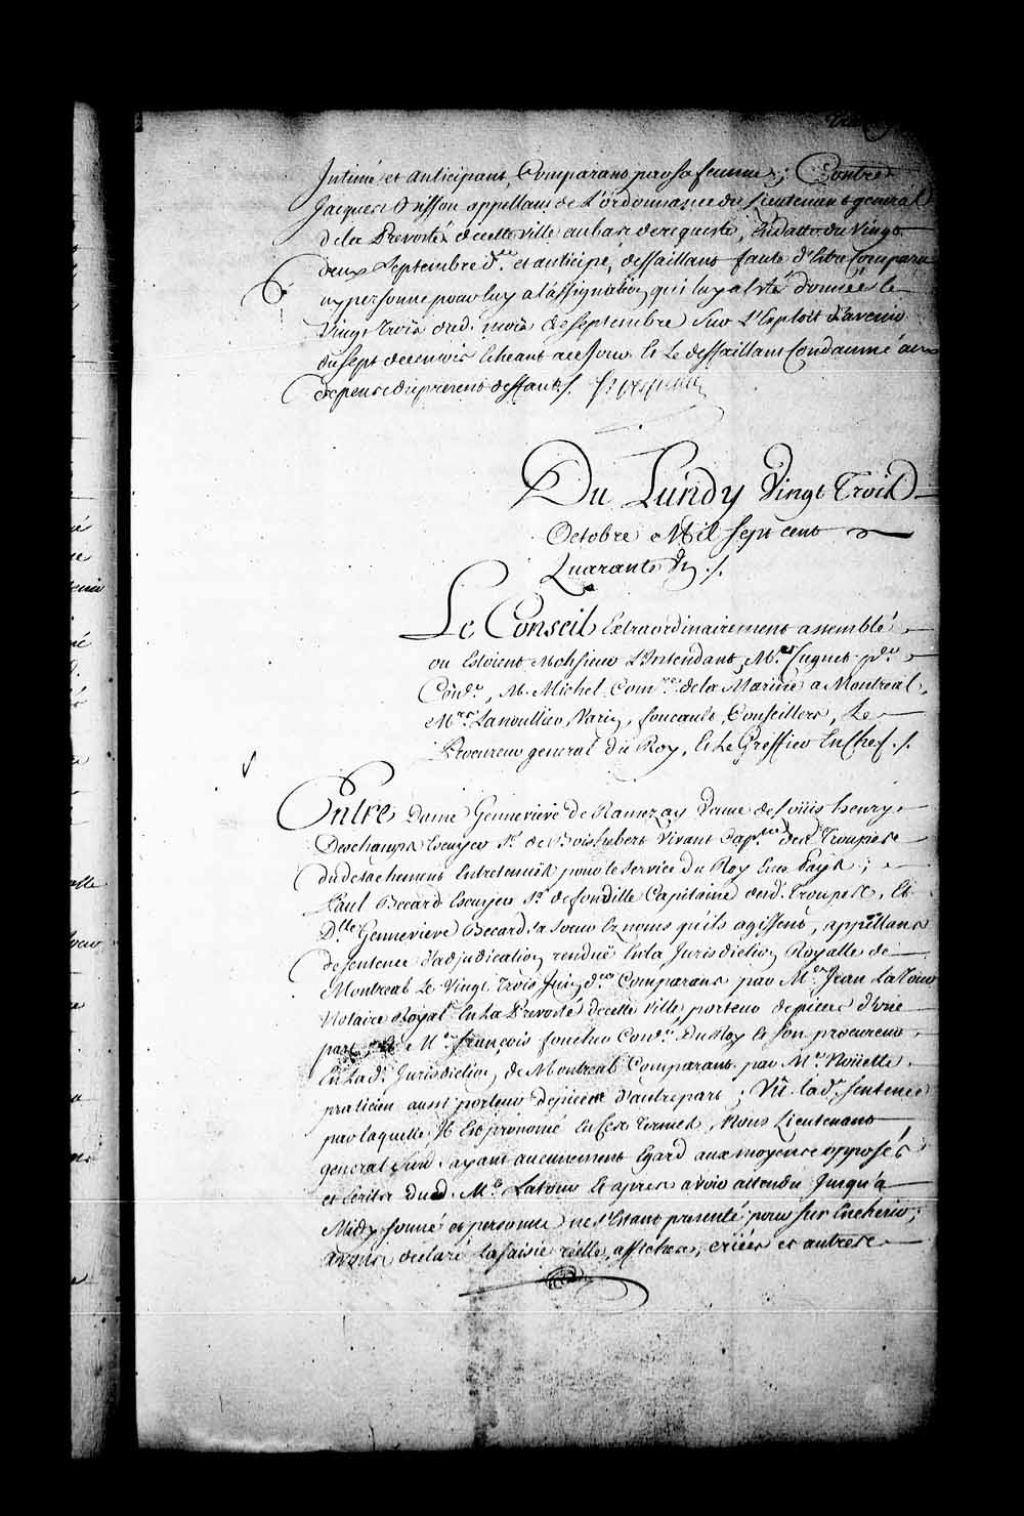 Intimé et anticipant, Comparant par sa femme; Contre
Jacques appellant de L'ordonnance du Lieutenant general
de la Prevosté de cette ville au bas de requeste, En datte du Vingt
deux Septembre d.er et anticipé, deffaillant faute d'Estre Comparu
ny personne pour luy a l'assignation qui luy a Eté donnée le
Vingt trois dud. mois de Septembre Sur L'Exploit d'avenir
du Sept de ce mois Echeant a ce Jour Et Le deffaillant Condamné aux
depens du present deffaut ./.
Du Lundy Vingt Trois
Octobre Mil Sept cent
Quarante
Le Conseil Extraordinairement assemblé
ou Estoient Monsieur L'Intendant, M.es Cugnet p.er
Con.er, M. Michel Com.re de la Marine a Montreal,
M.es Lanoullier, Varin, foucault, Conseillers, Le
Procureur general du Roy, Et Le Greffier En Chef ./.
Entre Dame Genneviéve de Ramezay Veuve de Loüis henry
Deschamps Escuyer S.r de Boishebert Vivant Cap.ne des Troupes
du detachement Entretenües pour le service du Roy En ce Païs;
Paul Becard Escuyer S.r de fonville Capitaine desd. Troupes, Et
D.lle Genneviéve Becard sa soeur Ez noms qu'ils agissent, appellans
de sentence d'adjudication rendüe En la Jurisdiction Royalle de
Montreal Le Vingt Trois Juin d.er Comparans par M.e Jean Latour
Notaire Royal En La Prevosté de cette Ville, porteur de pieces d'Une
part, Et M.e françois foucher Con.er Du Roy Et Son procureur
En la d. Jurisdiction de Montreal Comparant par M.e Noüette
praticien aussi porteur de pieces d'autre part; Vû lad. sentence
par laquelle Il Est prononcé En Ces Termes, Nous Lieutenant
general Susd. ayant aucunement Egard aux moyens opposés
et Ecrits dud. M.e Latour Et apres avoir attendu Jusqu'a
Midy sonné et personne ne s'Etant presenté pour sur Encherir,
avons declaré la saisie réelle, affiches, criées et autres